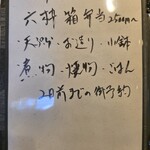 六拝 箱弁当 2500円〜
・天ぷら・お造り・小鉢
・煮物・焼物・ごはん
2日前までの御予約